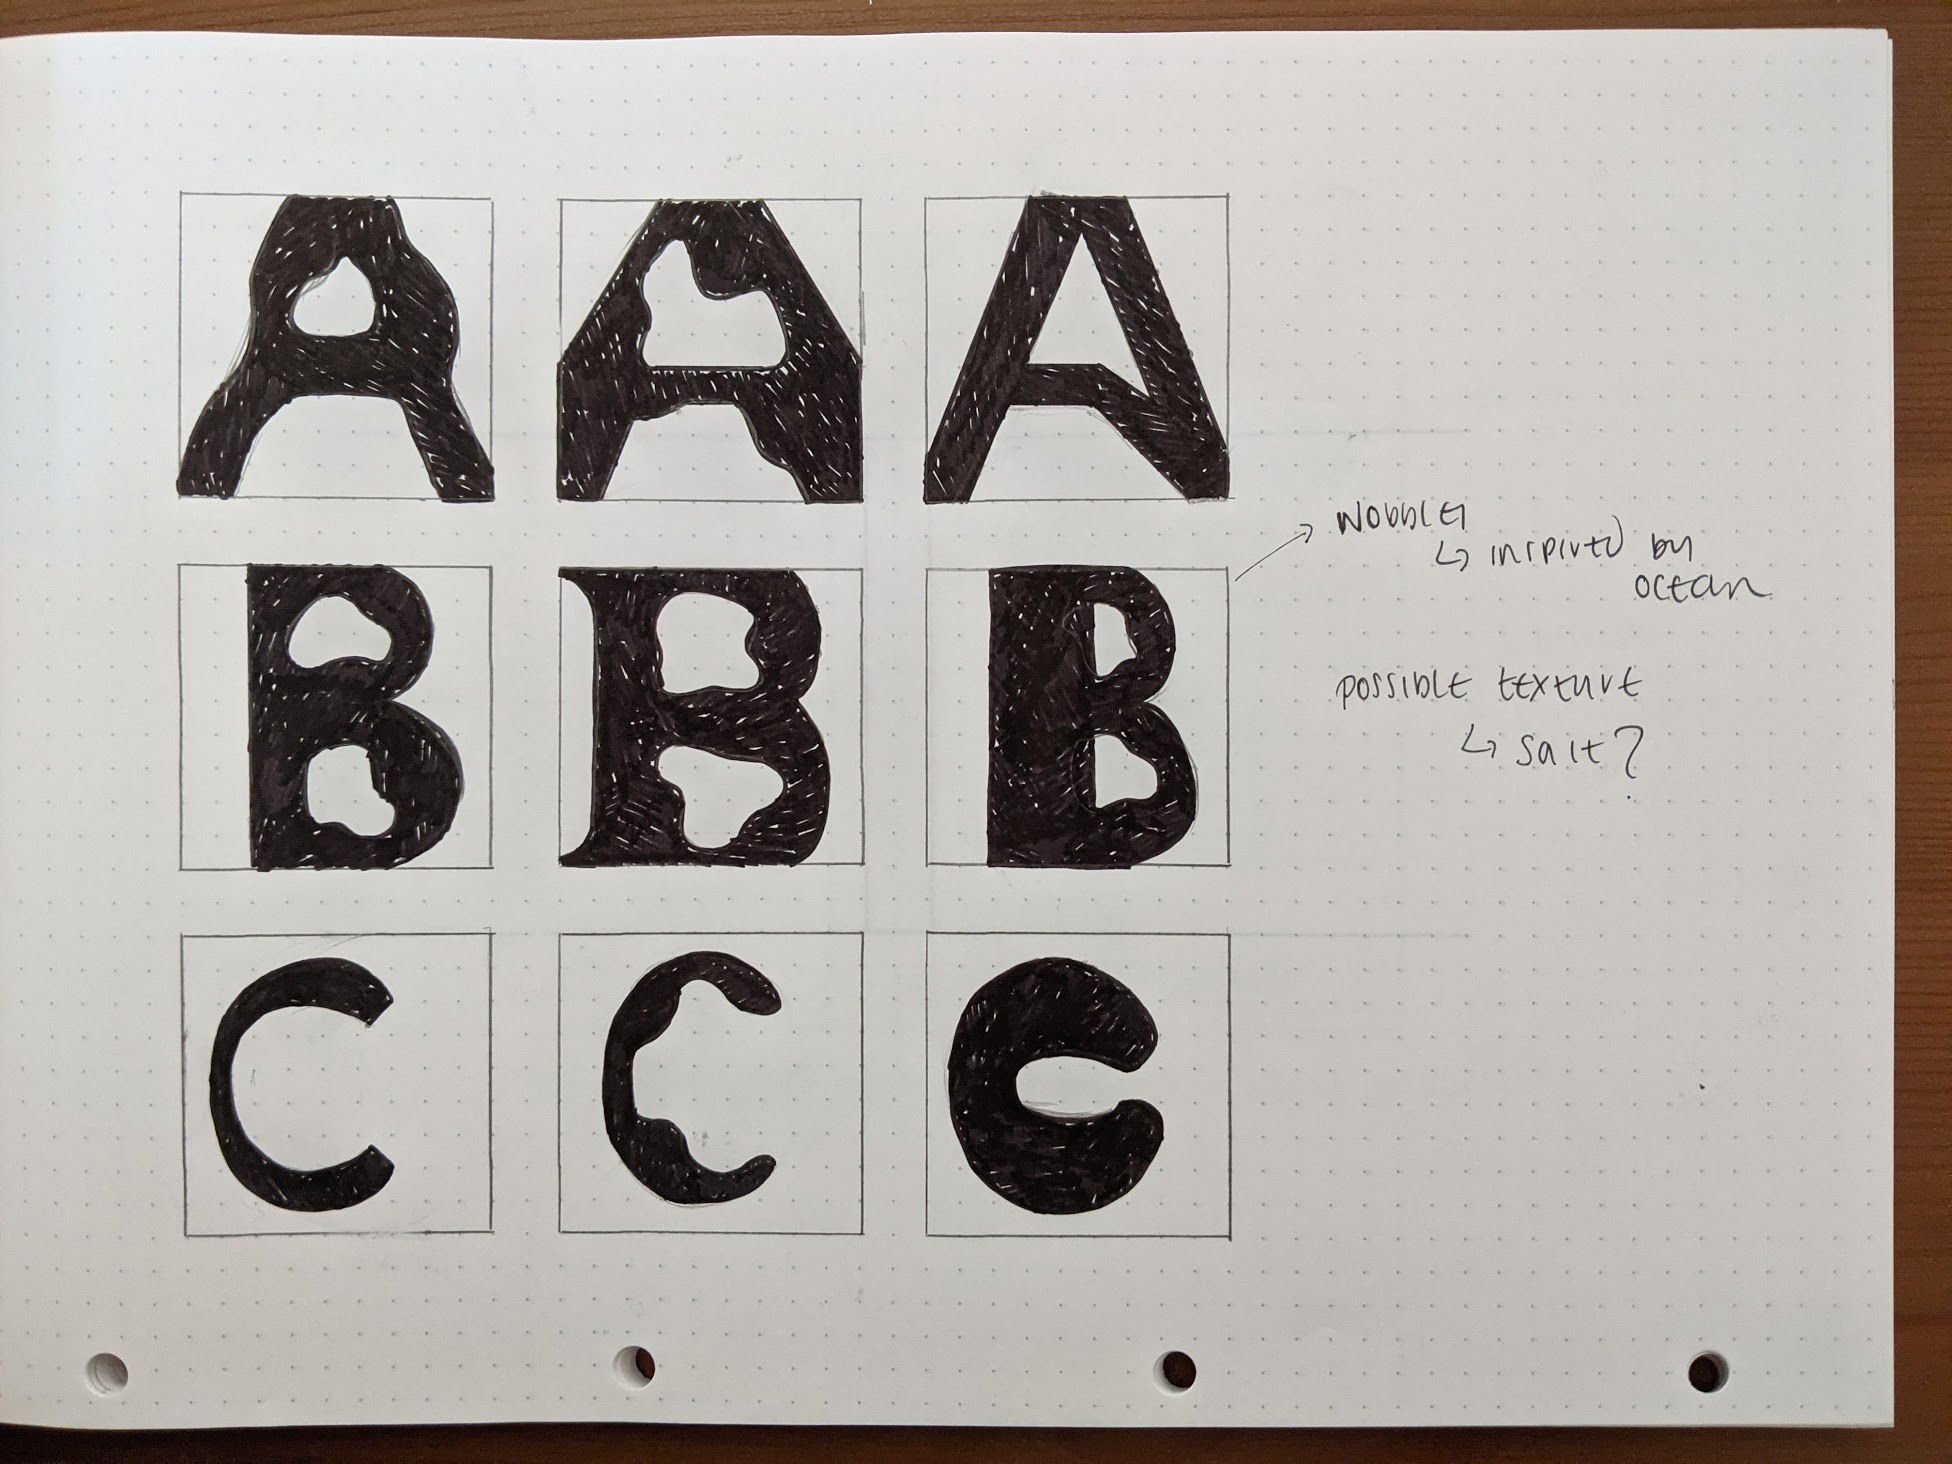 A A A
B B B
C C C
wobbly
↳ inspired by
ocean
possible texture
↳ salt?